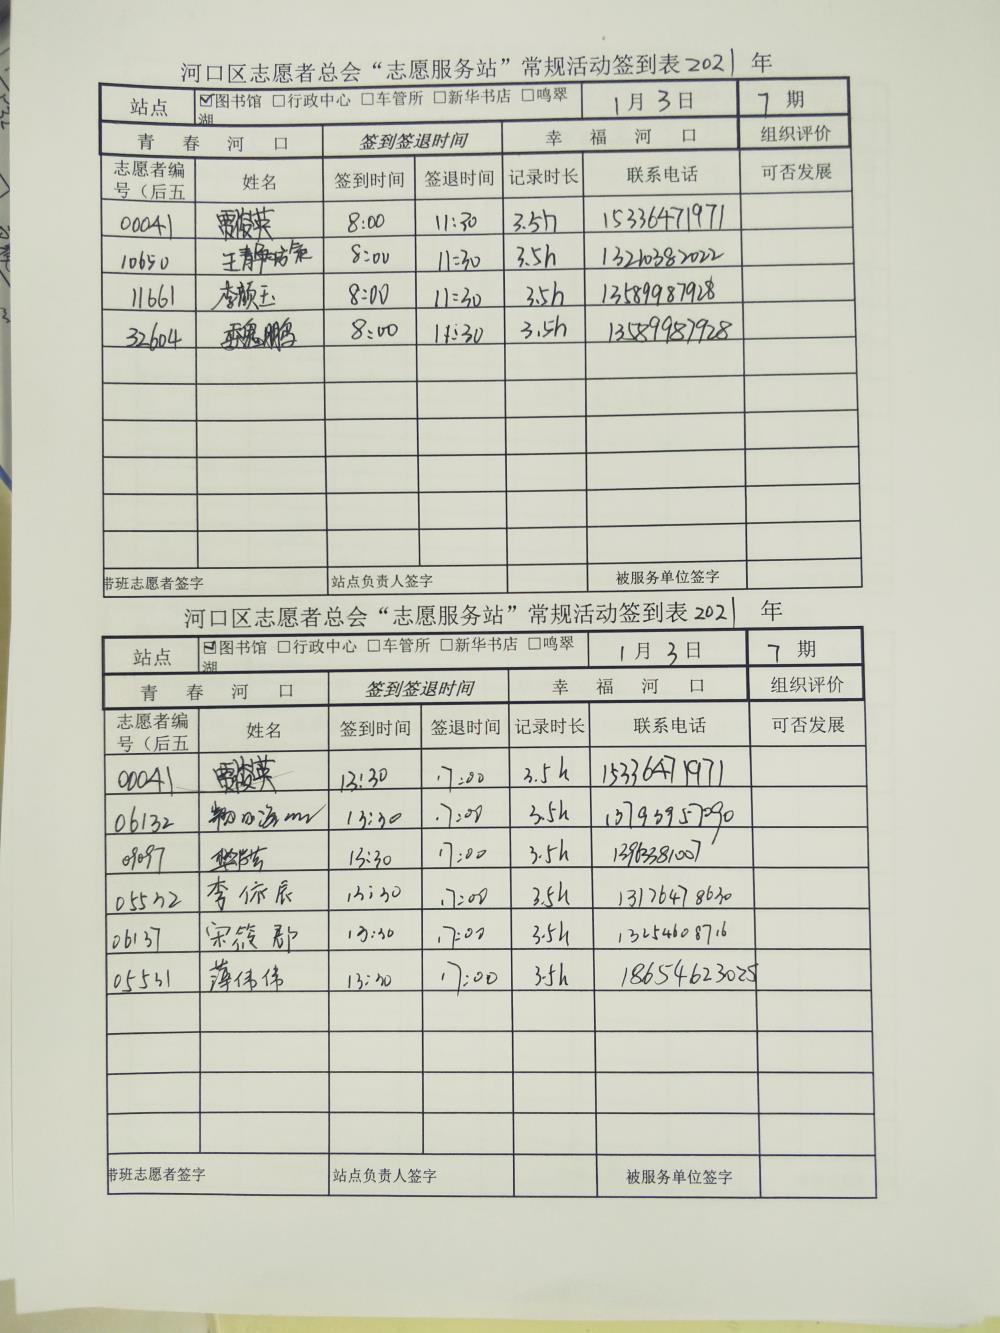 河口区志愿者总会“志愿服务站”常规活动签到表2021年
站点 ☑图书馆 □行政中心 □车管所 □新华书店 □鸣翠湖 1月3日 7期
青春河口 签到签退时间 幸福河口 组织评价
志愿者编号（后五 姓名 签到时间 签退时间 记录时长 联系电话 可否发展
00041 贾俊英 8:00 11:30 3.5h 15336471971
10650 8:00 11:30 3.5h 13210382022
11661 李颜玉 8:00 11:30 3.5h 13589987928
32604 8:00 11:30 3.5h 13589987928
带班志愿者签字 站点负责人签字 被服务单位签字
河口区志愿者总会“志愿服务站”常规活动签到表2021年
站点 ☑图书馆 □行政中心 □车管所 □新华书店 □鸣翠湖 1月3日 7期
青春河口 签到签退时间 幸福河口 组织评价
志愿者编号（后五 姓名 签到时间 签退时间 记录时长 联系电话 可否发展
00041 贾俊英 13:30 17:00 3.5h 15336471971
06132 13:30 17:00 3.5h 13793957090
09097 13:30 17:00 3.5h 13963381007
05532 李依辰 13:30 17:00 3.5h 13176478630
06137 宋筱郡 13:30 17:00 3.5h 13254608716
05531 薄伟伟 13:30 17:00 3.5h 18654623025
带班志愿者签字 站点负责人签字 被服务单位签字